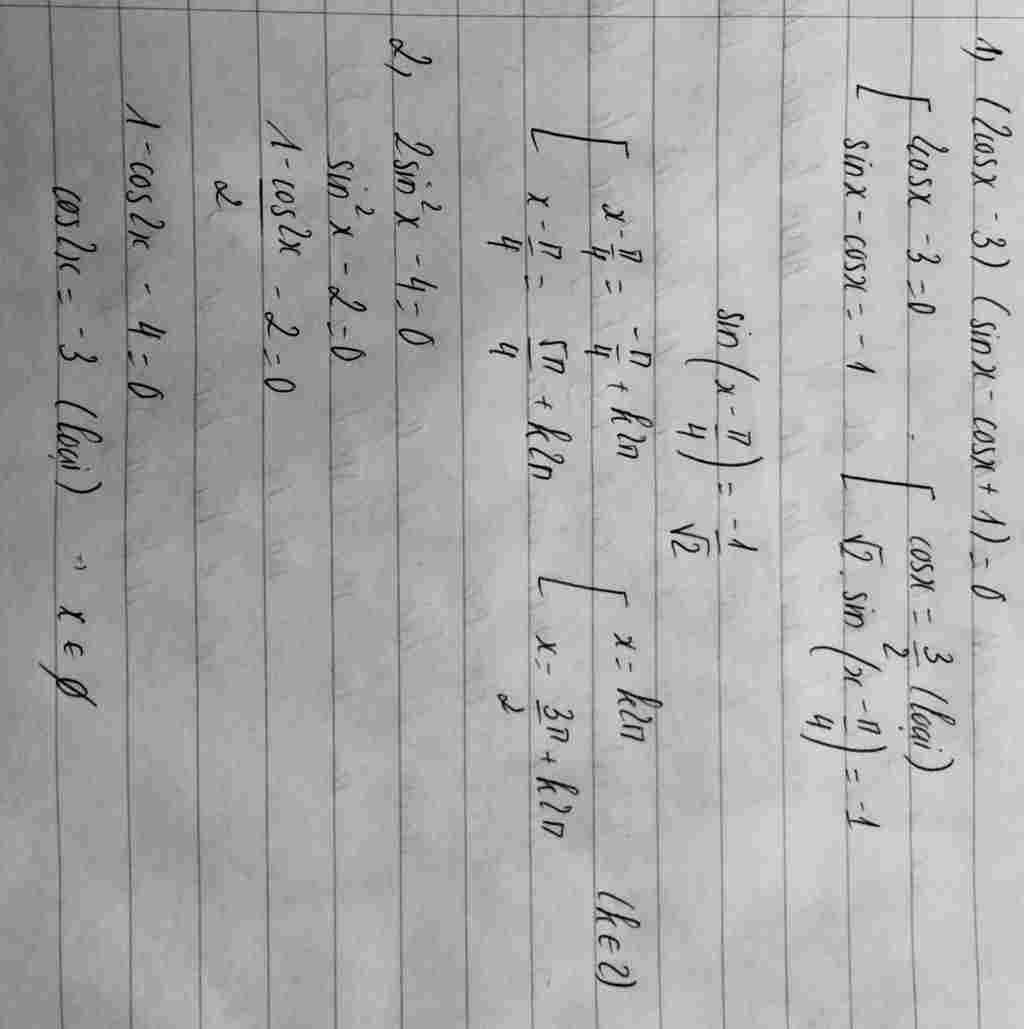 1, (2cosx - 3) (sinx - cosx + 1) = 0
[ 2cosx - 3 = 0 [ cosx = 3/2 (loại)
sinx - cosx = -1 √2 . sin (x - π/4) = -1
sin (x - π/4) = -1/√2
[ x - π/4 = -π/4 + k2π [ x = k2π (k ∈ Z)
x - π/4 = 5π/4 + k2π x = 3π/2 + k2π
2, 2sin²x - 4 = 0
sin²x - 2 = 0
(1 - cos2x)/2 - 2 = 0
1 - cos2x - 4 = 0
cos2x = -3 (loại) => x ∈ ∅